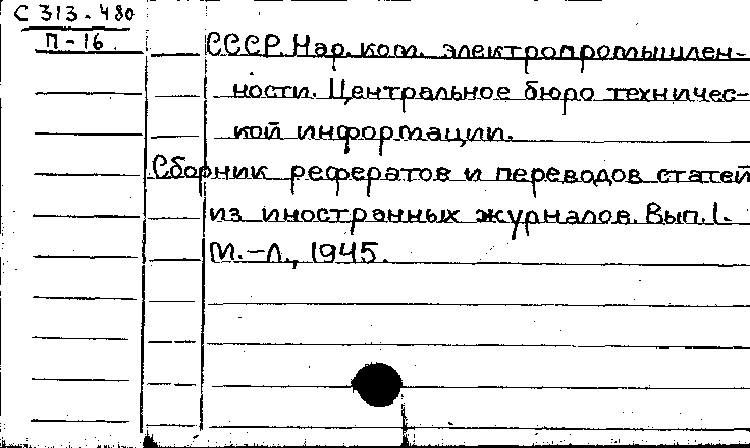 С 313-480
П-16.
СССР. Нар. ком. электропромышлен-
ности. Центральное бюро техничес-
кой информации.
Сборник рефератов и переводов статей
из иностранных журналов. Вып.1.-
М.-Л., 1945.